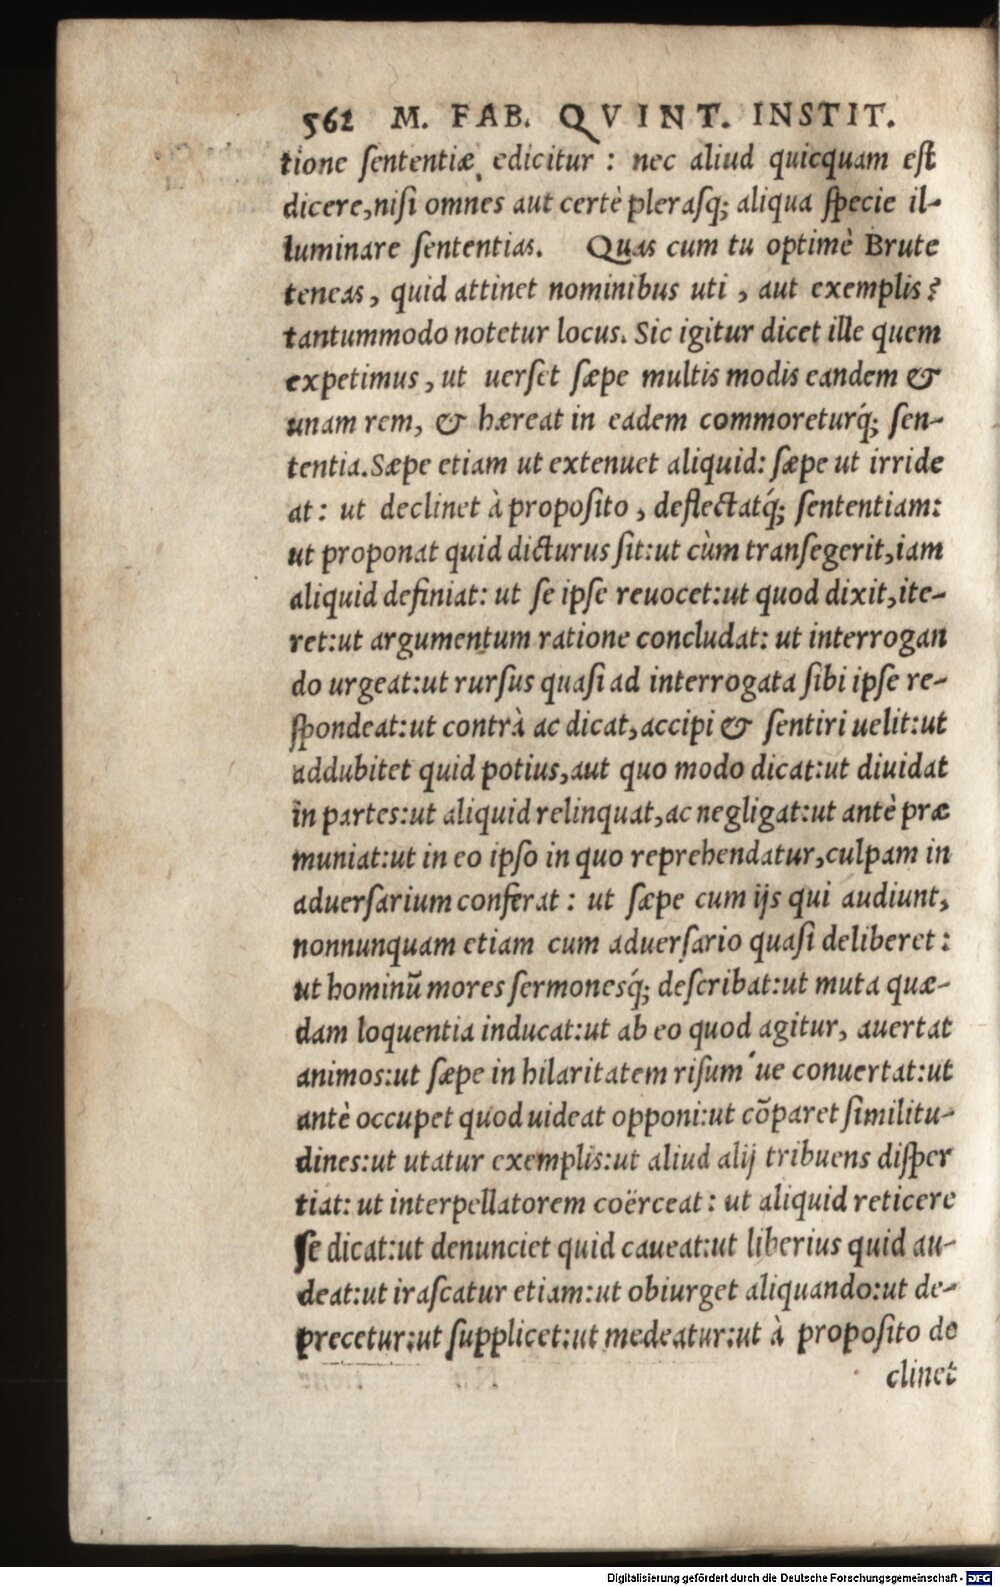 562 M. FAB. QVINT. INSTIT.
tione ſententiæ edicitur : nec aliud quicquam eſt
dicere,niſi omnes aut certè pleraſq; aliqua ſpecie il-
luminare ſententias. Quas cum tu optimè Brute
teneas, quid attinet nominibus uti, aut exemplis?
tantummodo notetur locus. Sic igitur dicet ille quem
expetimus, ut uerſet ſæpe multis modis eandem &
unam rem, & hæreat in eadem commoretuŕq; ſen-
tentia.Sæpe etiam ut extenuet aliquid: ſæpe ut irride
at: ut declinet à propoſito, deflectat́q; ſententiam:
ut proponat quid dicturus ſit:ut cùm tranſegerit,iam
aliquid definiat: ut ſe ipſe reuocet:ut quod dixit,ite-
ret:ut argumentum ratione concludat: ut interrogan
do urgeat:ut rurſus quaſi ad interrogata ſibi ipſe re-
ſpondeat:ut contrà ac dicat,accipi & ſentiri uelit:ut
addubitet quid potius,aut quo modo dicat:ut diuidat
in partes:ut aliquid relinquat,ac negligat:ut antè præ
muniat:ut in eo ipſo in quo reprehendatur,culpam in
aduerſarium conferat: ut ſæpe cum ijs qui audiunt,
nonnunquam etiam cum aduerſario quaſi deliberet:
ut hominũ mores ſermoneśq; deſcribat:ut muta quæ-
dam loquentia inducat:ut ab eo quod agitur, auertat
animos:ut ſæpe in hilaritatem riſum'ue conuertat:ut
antè occupet quod uideat opponi:ut cõparet ſimilitu-
dines:ut utatur exemplis:ut aliud alij tribuens diſper
tiat: ut interpellatorem coërceat: ut aliquid reticere
ſe dicat:ut denunciet quid caueat:ut liberius quid au-
deat:ut iraſcatur etiam:ut obiurget aliquando:ut de-
precetur:ut ſupplicet:ut medeatur:ut à propoſito de
clinet
Digitalisierung gefördert durch die Deutsche Forschungsgemeinschaft - DFG